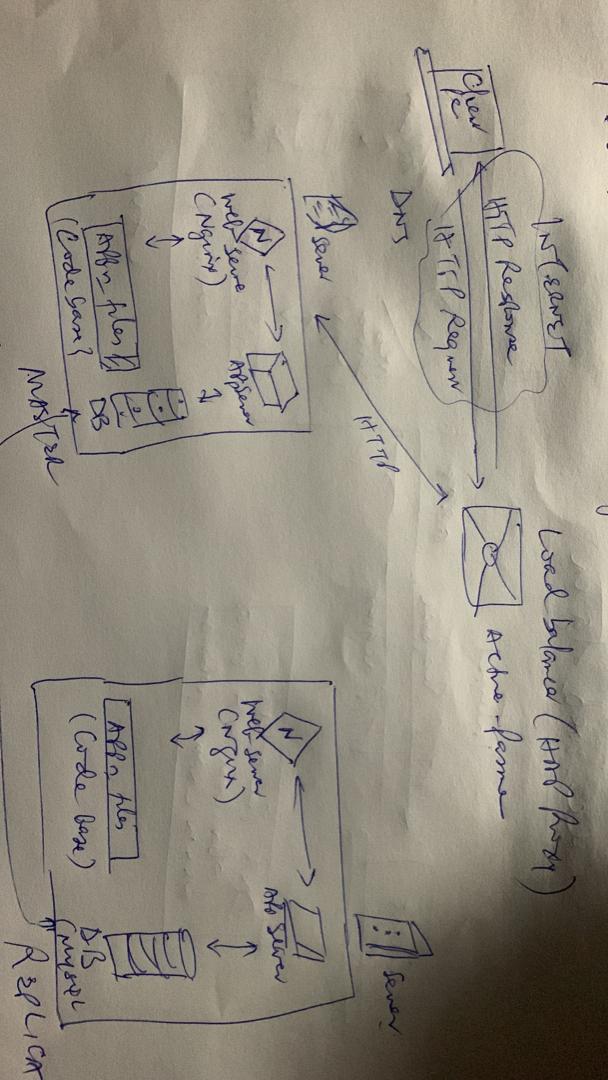 INTERNET
Client
PC
HTTP Response
HTTP Request
DNS
Load balancer (HAProxy)
Active-Passive
HTTP
Server
N
Web Serve
(Nginx)
App Server
Appn files
(Code base)
DB
MASTER
Server
N
Web server
(Nginx)
App Server
Appn files
(Code base)
DB
(MySQL
REPLICA